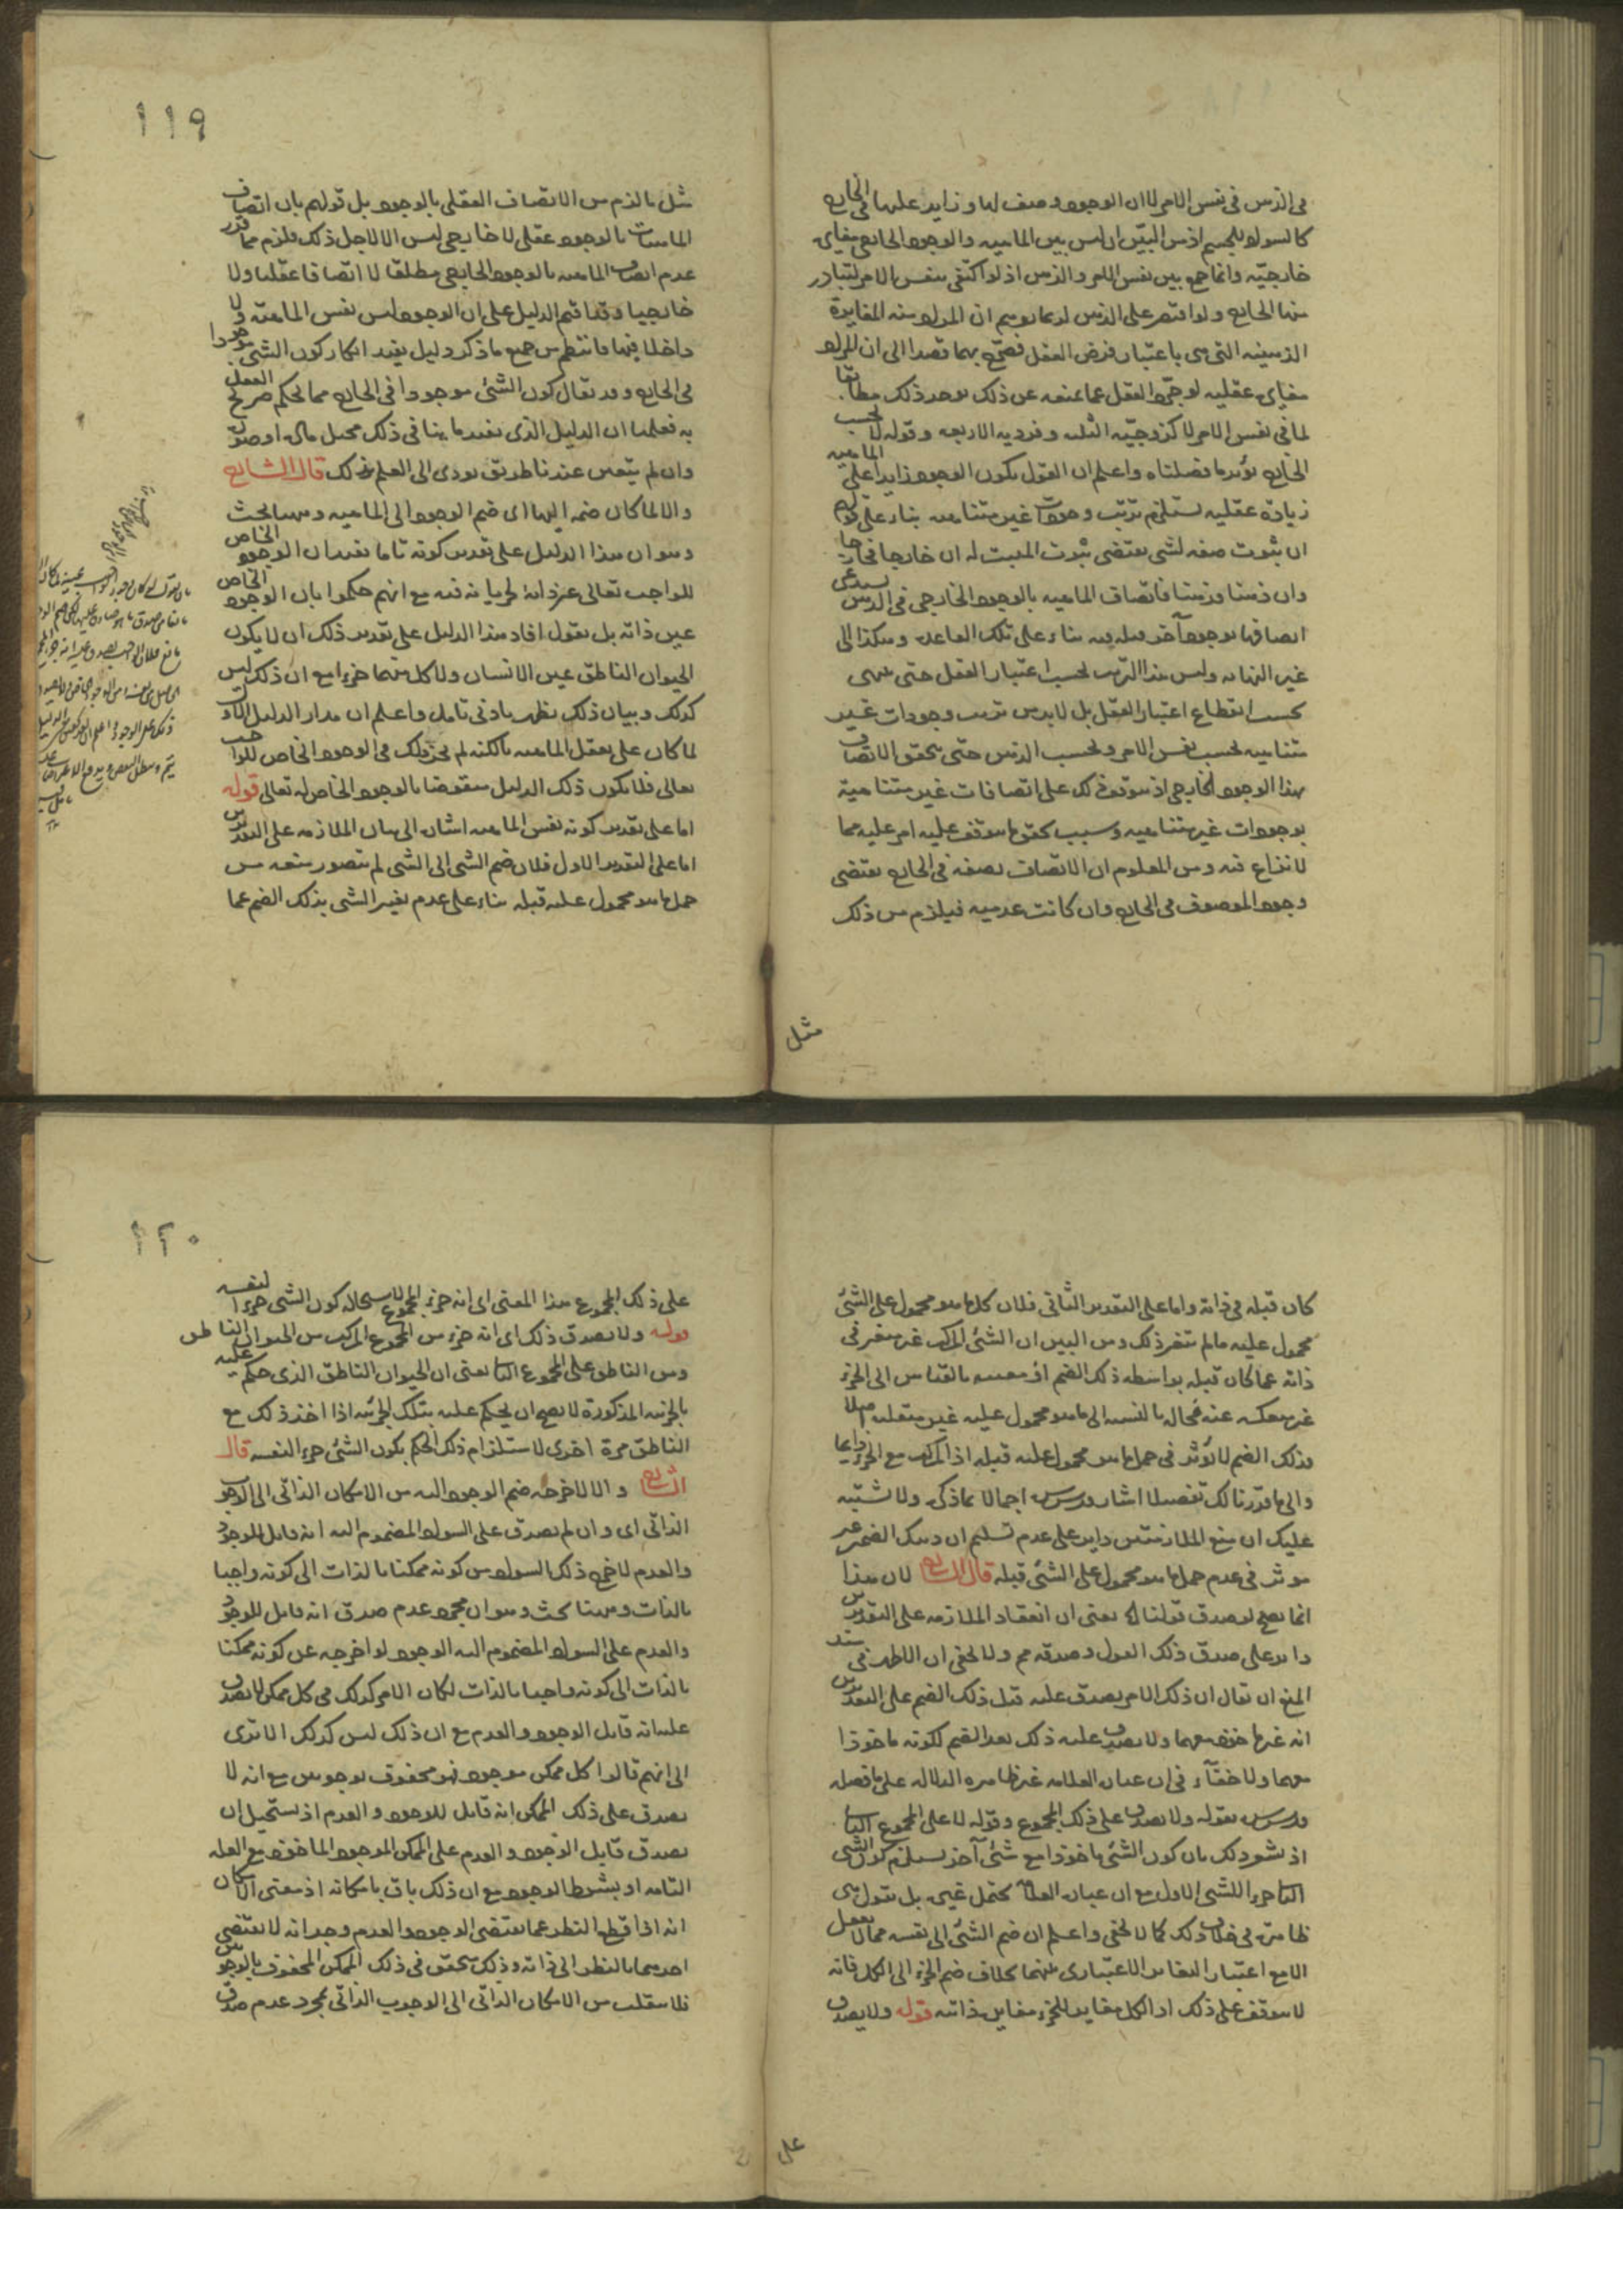 فى الذهن فى نفس الامر لا ان الوجود وصف لها و زايد عليها فى الخارج
كالسواد للجسم اذ من البيّن ان ليس بين الماهيه والوجود الخارجى مغايرة
خارجيّة وانما جمع بين نفس الامر والذهن اذ لو اكتفى بنفس الامر لتبادر
منها الخارج ولو اقتصر على الذهن لربما توهم ان المراد منه المغايرة
الذهنيه التى هى باعتبار فرض العقل فصرّح بهما قصدا الى ان المراد
مغايرة عقليه لو جرّد العقل عما يمنعه عن ذلك لوجد ذلك مطابقا
لما فى نفس الامر لا كزوجيّه الثلثه وفرديه الاربعه وقوله لا بحسب
الخارج يؤيد ما فصلناه واعلم ان القول بكون الوجود زايدا على الماهيه
زيادة عقليه يستلزم ترتب وجودات غير متناهيه بناء على قولهم
ان ثبوت صفه لشى يقتضى ثبوت المثبت له ان خارجا فخارجا
وان ذهنا فذهنا فاتصاف الماهيه بالوجود الخارجى فى الذهن يستدعى
اتصافها بوجود آخر قبله فيه بناء على تلك القاعدة وهكذا الى
غير النهايه وليس هذا الترتب بحسب اعتبار العقل حتى ينتهى
بحسب انقطاع اعتبار العقل بل لا بد من ترتب وجودات غير
متناهيه بحسب نفس الامر وبحسب الذهن حتى يتحقق الاتصاف
بهذا الوجود الخارجى اذ يتوقف ذلك على اتصافات غير متناهية
بوجودات غير متناهيه وسبب تحقق ما يتوقف عليه امر عليه مما
لا نزاع فيه ومن المعلوم ان الاتصاف بصفه فى الخارج يقتضى
وجود الموصوف فى الخارج وان كانت عدميه فيلزم من ذلك
مثل
١١٩
مثل ما لزم من الاتصاف العقلى بالوجود بل قولهم بان اتصاف
الماهيات بالوجود عقلى لا خارجى ليس الا لاجل ذلك فلزم مما قرر
عدم اتصاف الماهيه بالوجود الخارجى مطلقا لا اتصافا عقليا ولا
خارجيا وقد اقيم الدليل على ان الوجود ليس نفس الماهيّة ولا
داخلا فيها فانتظم من جميع ما ذكر دليل يفيد انكار كون الشى موجودا
فى الخارج وقد يقال كون الشئ موجودا فى الخارج مما يحكم صريح العقل
به فعلمنا ان الدليل الذى يفيد ما ينافى ذلك مختل مادة او صورة
وان لم يتعين عندنا طريق يودى الى العلم بذلك قال الشارح
والا لما كان ضمه اليها اى ضم الوجود الى الماهيه وههنا بحث
وهو ان هذا الدليل على تقدير كونه تاما يفيد ان الوجود الخاص
للواجب تعالى غير ذاته لجريانه فيه مع انهم حكموا بان الوجود الخاص
عين ذاته بل نقول افاد هذا الدليل على تقدير ذلك ان لا يكون
الحيوان الناطق عين الانسان ولا كل منهما جزءا مع ان ذلك ليس
كذلك وبيان ذلك يظهر بادنى تامل واعلم ان مدار الدليل الاول
لما كان على تعقل الماهيه بالكنه لم يجر ذلك فى الوجود الخاص للواجب
تعالى فلا يكون ذلك الدليل منقوضا بالوجود الخاص له تعالى قوله
اما على تقدير كونه نفس الماهيه اشارة الى بيان الملازمه على التقديرين
اما على التقدير الاول فلان ضم الشى الى الشى لم يتصور منعه من
حمل ما هو محمول عليه قبله بناء على عدم تغير الشى بذلك الضم عما
كان قبله فى ذاته واما على التقدير الثانى فلان كل ما هو محمول على الشئ
محمول عليه ما لم يتغير ذلك ومن البين ان الشئ المركب غير متغير فى
ذاته عما كان قبله بواسطه ذلك الضم اذ معيته بالقياس الى الجزء
غير منفكه عنه فحاله بالنسبه الى ما هو محمول عليه غير متقلبه اصلا
فذلك الضم لا يؤثر فى حمل ما هو محمول عليه قبله اذ المركب مع الجزء دايما
والى ما قرّرنا لك تفصيلا اشار قدس سره اجمالا بما ذكره ولا يشتبه
عليك ان منع الملازمتين داير على عدم تسليم ان ذينك الضمين غير
موثر فى عدم حمل ما هو محمول على الشئ قبله قال الشارح لان هذا
انما يصح لو صدق قولنا اه يعنى ان انعقاد الملازمه على التقديرين
داير على صدق ذلك القول وصدقه مم ولا يخفى ان الاظهر فى سند
المنع ان يقال ان ذلك الامر يصدق عليه قبل ذلك الضم على التقديرين
انه غير ماخوذ معهما ولا يصدق عليه ذلك بعد الضم لكونه ماخوذا
معهما ولا خفآء فى ان عبارة العلامه غير ظاهره الدلاله على ما فصله
قدس سره بقوله ولا يصدق على ذلك المجموع وقوله لا على المجموع الثانى
اذ يشعر ذلك بان كون الشئ ماخوذا مع شئ آخر يستلزم كون الشى
الثانى جزءا للشى الاول مع ان عبارة العلامة تحتمل غيره بل نقول هى
ظاهرة فى خلاف ذلك كما لا يخفى واعلم ان ضم الشئ الى نفسه مما لا يعقل
الا مع اعتبار التغاير الاعتبارى بينهما بخلاف ضم الجزء الى الكل فانه
لا يتوقف على ذلك اذ الكل مغاير للجزء مغايرة ذاتيه قوله ولا يصدق
على
١٢٠
على ذلك المجموع هذا المعنى اى انه جزء المجموع لاستحاله كون الشى جزءا لنفسه
قوله ولا يصدق ذلك اى انه جزء من المجموع المركب من الحيوان الناطق
ومن الناطق على المجموع الثانى يعنى ان الحيوان الناطق الذى حكم عليه
بالجزئيه المذكورة لا يصح ان يحكم عليه بتلك الجزئيه اذا اخذ ذلك مع
الناطق مرة اخرى لاستلزام ذلك الحكم بكون الشئ جزءا لنفسه قال
الشارح والا لاخرجه ضم الوجود اليه من الامكان الذاتى الى الوجوب
الذاتى اى وان لم يصدق على السواد المضموم اليه انه قابل للوجود
والعدم لاخرج ذلك السواد من كونه ممكنا بالذات الى كونه واجبا
بالذات وههنا بحث وهو ان مجرد عدم صدق انه قابل للوجود
والعدم على السواد المضموم اليه الوجود لو اخرجه عن كونه ممكنا
بالذات الى كونه واجبا بالذات لكان الامر كذلك فى كل ممكن لا يصدق
عليه انه قابل الوجود والعدم مع ان ذلك ليس كذلك الا ترى
الى انهم قالوا كل ممكن موجود فهو محفوف بوجوبين مع انه لا
يصدق على ذلك الممكن انه قابل للوجود والعدم اذ يستحيل ان
يصدق قابل الوجود والعدم على الممكن الموجود الماخوذ مع العله
التامه او بشرط الوجود مع ان ذلك باق بامكانه اذ معنى الامكان
انه اذا قطع النظر عما يقتضى الوجود والعدم وجد انه لا يقتضى
احدهما بالنظر الى ذاته وذلك متحقق فى ذلك الممكن المحفوف بالوجوبين
فلا ينقلب من الامكان الذاتى الى الوجوب الذاتى بمجرد عدم صدق